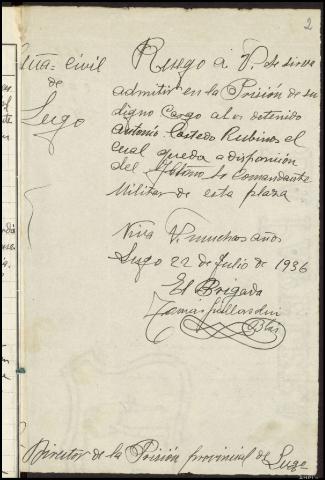 2
Civil
de
Lugo
Ruego a V. se sirva
admitir en la Prisión de su
digno Cargo a los detenido
Antonio Castedo Rubinos el
cual queda a disposición
del Iltmo Sr Comandante
Militar de esta plaza
Viva V. muchos años
Lugo 22 de Julio de 1936
El Brigada
Tomas
Blas
Director de la Prisión provincial de Lugo